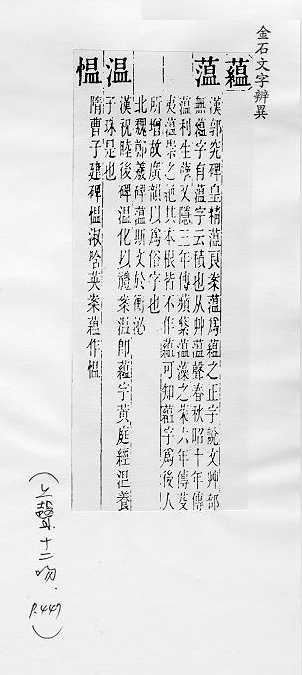 金石文字辨異
蘊
薀
漢郭究碑皇精薀案薀爲蘊之正字說文艸部
無蘊字有薀字云積也从艸溫聲春秋昭十年傳
薀利生孽又隱三年傳蘋蘩薀藻之菜六年傳芟
夷薀崇之絕其本根皆不作蘊可知蘊字爲後人
所增故廣韻以爲俗字也
北魏鄭羲碑薀斯文於衡泌
溫
漢祝睦後碑溫化以禮案溫卽蘊字黃庭經溫養
子珠是也
愠
隋曹子建碑愠淑含英案蘊作愠
(上聲十二吻. P.447)